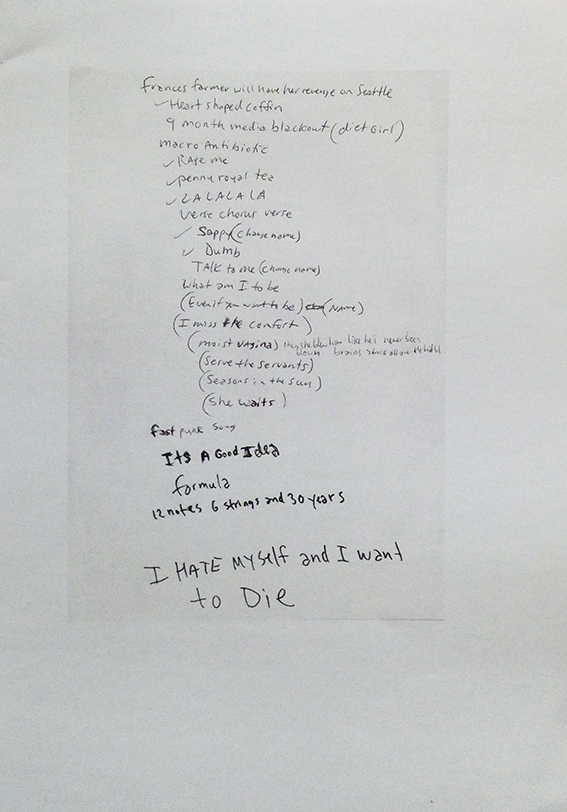 Frances farmer will have her revenge on Seattle
✓ Heart shaped coffin
9 month media blackout (diet Girl)
Macro Antibiotic
✓ RAPE me
✓ penny royal tea
✓ LA LA LA LA
Verse chorus verse
✓ Sappy (change name)
✓ Dumb
TALK to me (change name)
What am I to be
(Even if you want to be) (NAME)
(I miss the comfort)
(moist vagina) like he's never been
blown brains
(Serve the servants)
(Seasons in the sun)
(She waits)
fast punk Song
Its A Good Idea
formula
12 notes 6 strings and 30 years
I HATE MYself and I want
to Die